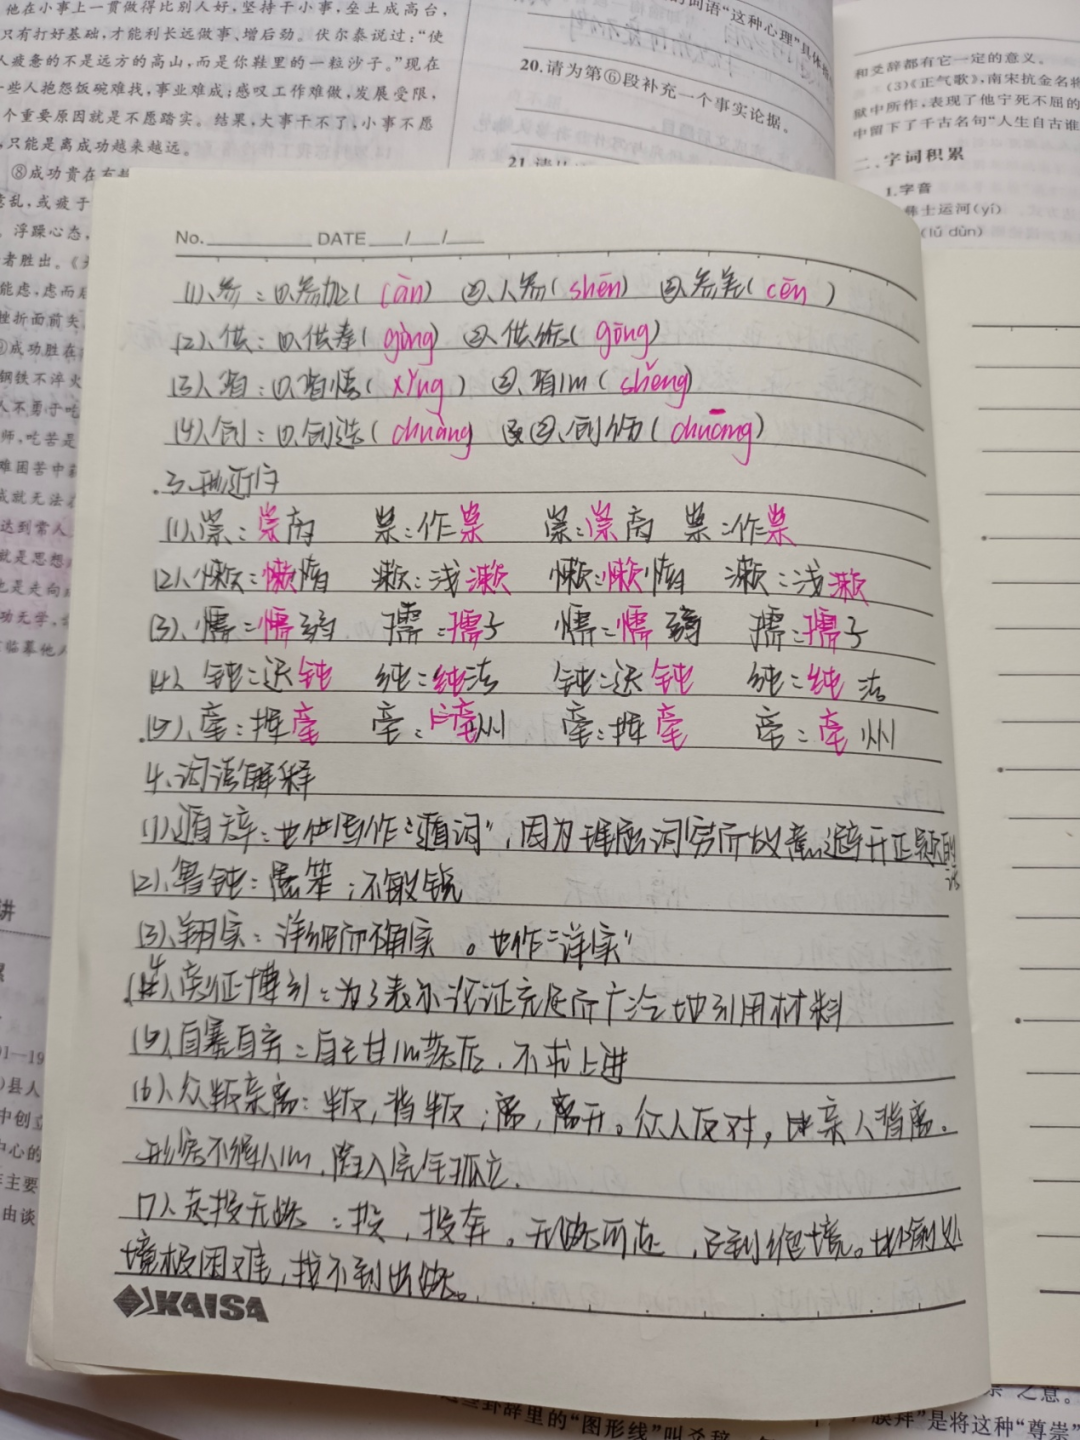 他在小事上一贯做得比别人好,坚持干小事,垒土成高台,
只有打好基础,才能利长远做事、增后劲。伏尔泰说过:“使
人疲惫的不是远方的高山,而是你鞋里的一粒沙子。”现在
一些人抱怨饭碗难找,事业难成;感叹工作难做,发展受限,
个重要原因就是不愿踏实。结果,大事干不了,小事不愿
,只能是离成功越来越远。
⑧成功贵在
乱,或疲于
浮躁心态,
者胜出。《
能虑,虑而
挫折面前失
成功胜在
钢铁不淬火
人不勇于吃
师,吃苦是
难困苦中
成就无法
达到常人
就是思想
也是走向
功无学,
临摹他人
的词语“这种心理”具体
20.请为第⑥段补充一个事实论据。
21.
和爻辞都有它一定的意义。
(3)《正气歌》,南宋抗金名将
狱中所作,表现了他宁死不屈的
中留下了千古名句“人生自古谁
二、字词积累
1.字音
彝士运河(yí)
(lú dùn)
No. DATE / /
(1)、参:①、参加(cān) ②、人参(shēn) ③、参差(cēn)
(2)、供:①、供奉(gòng) ②、供给(gōng)
(3)、省:①、省悟(xǐng) ②、省(shěng)
(4)、创:①、创造(chuàng ②、创伤(chuāng)
3、形近字
(1)、崇:崇高 祟:作祟 崇:崇高 祟:作祟
(2)、懒:懒惰 濑:浅濑 懒:懒惰 濑:浅濑
(3)、懦:懦弱 孺:孺子 懦:懦弱 孺:孺子
(4)、钝:迟钝 纯:纯洁 钝:迟钝 纯:纯洁
(5)、毫:挥毫 亳:亳州 毫:挥毫 亳:亳州
4、词语解释
(1)遁辞:也作“遁词”,因为理屈词穷而故意避开正题的话
(2)、鲁钝:愚笨;不敏锐
(3)、翔实:详细而确实。也作“详实”
(4)、旁征博引:为了表示论证充足而广泛地引用材料
(5)、自暴自弃:自己甘心落后,不求上进
(6)、众叛亲离:叛,背叛;离,离开。众人反对,亲人背离。
形容不得人心,陷入完全孤立.
(7)、走投无路:投,投奔。无路可走,已到绝境。比喻处
境极困难,找不到出路。
KAISA
讲
县人
中创立
中心的
主要
由谈
卦辞里的“图形线”叫爻辞
之意。
“膜拜”是将这种“尊崇”